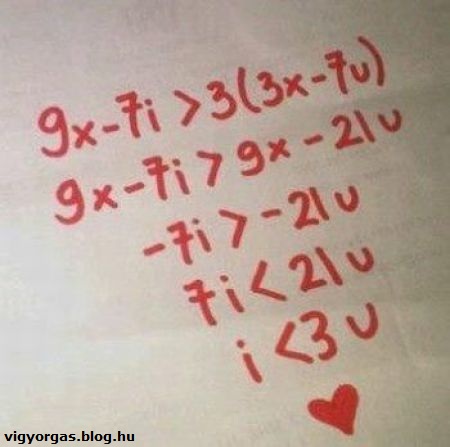 9x-7i > 3(3x-7u)
9x-7i > 9x - 21u
-7i > -21u
7i < 21u
i <3 u
vigyorgas.blog.hu